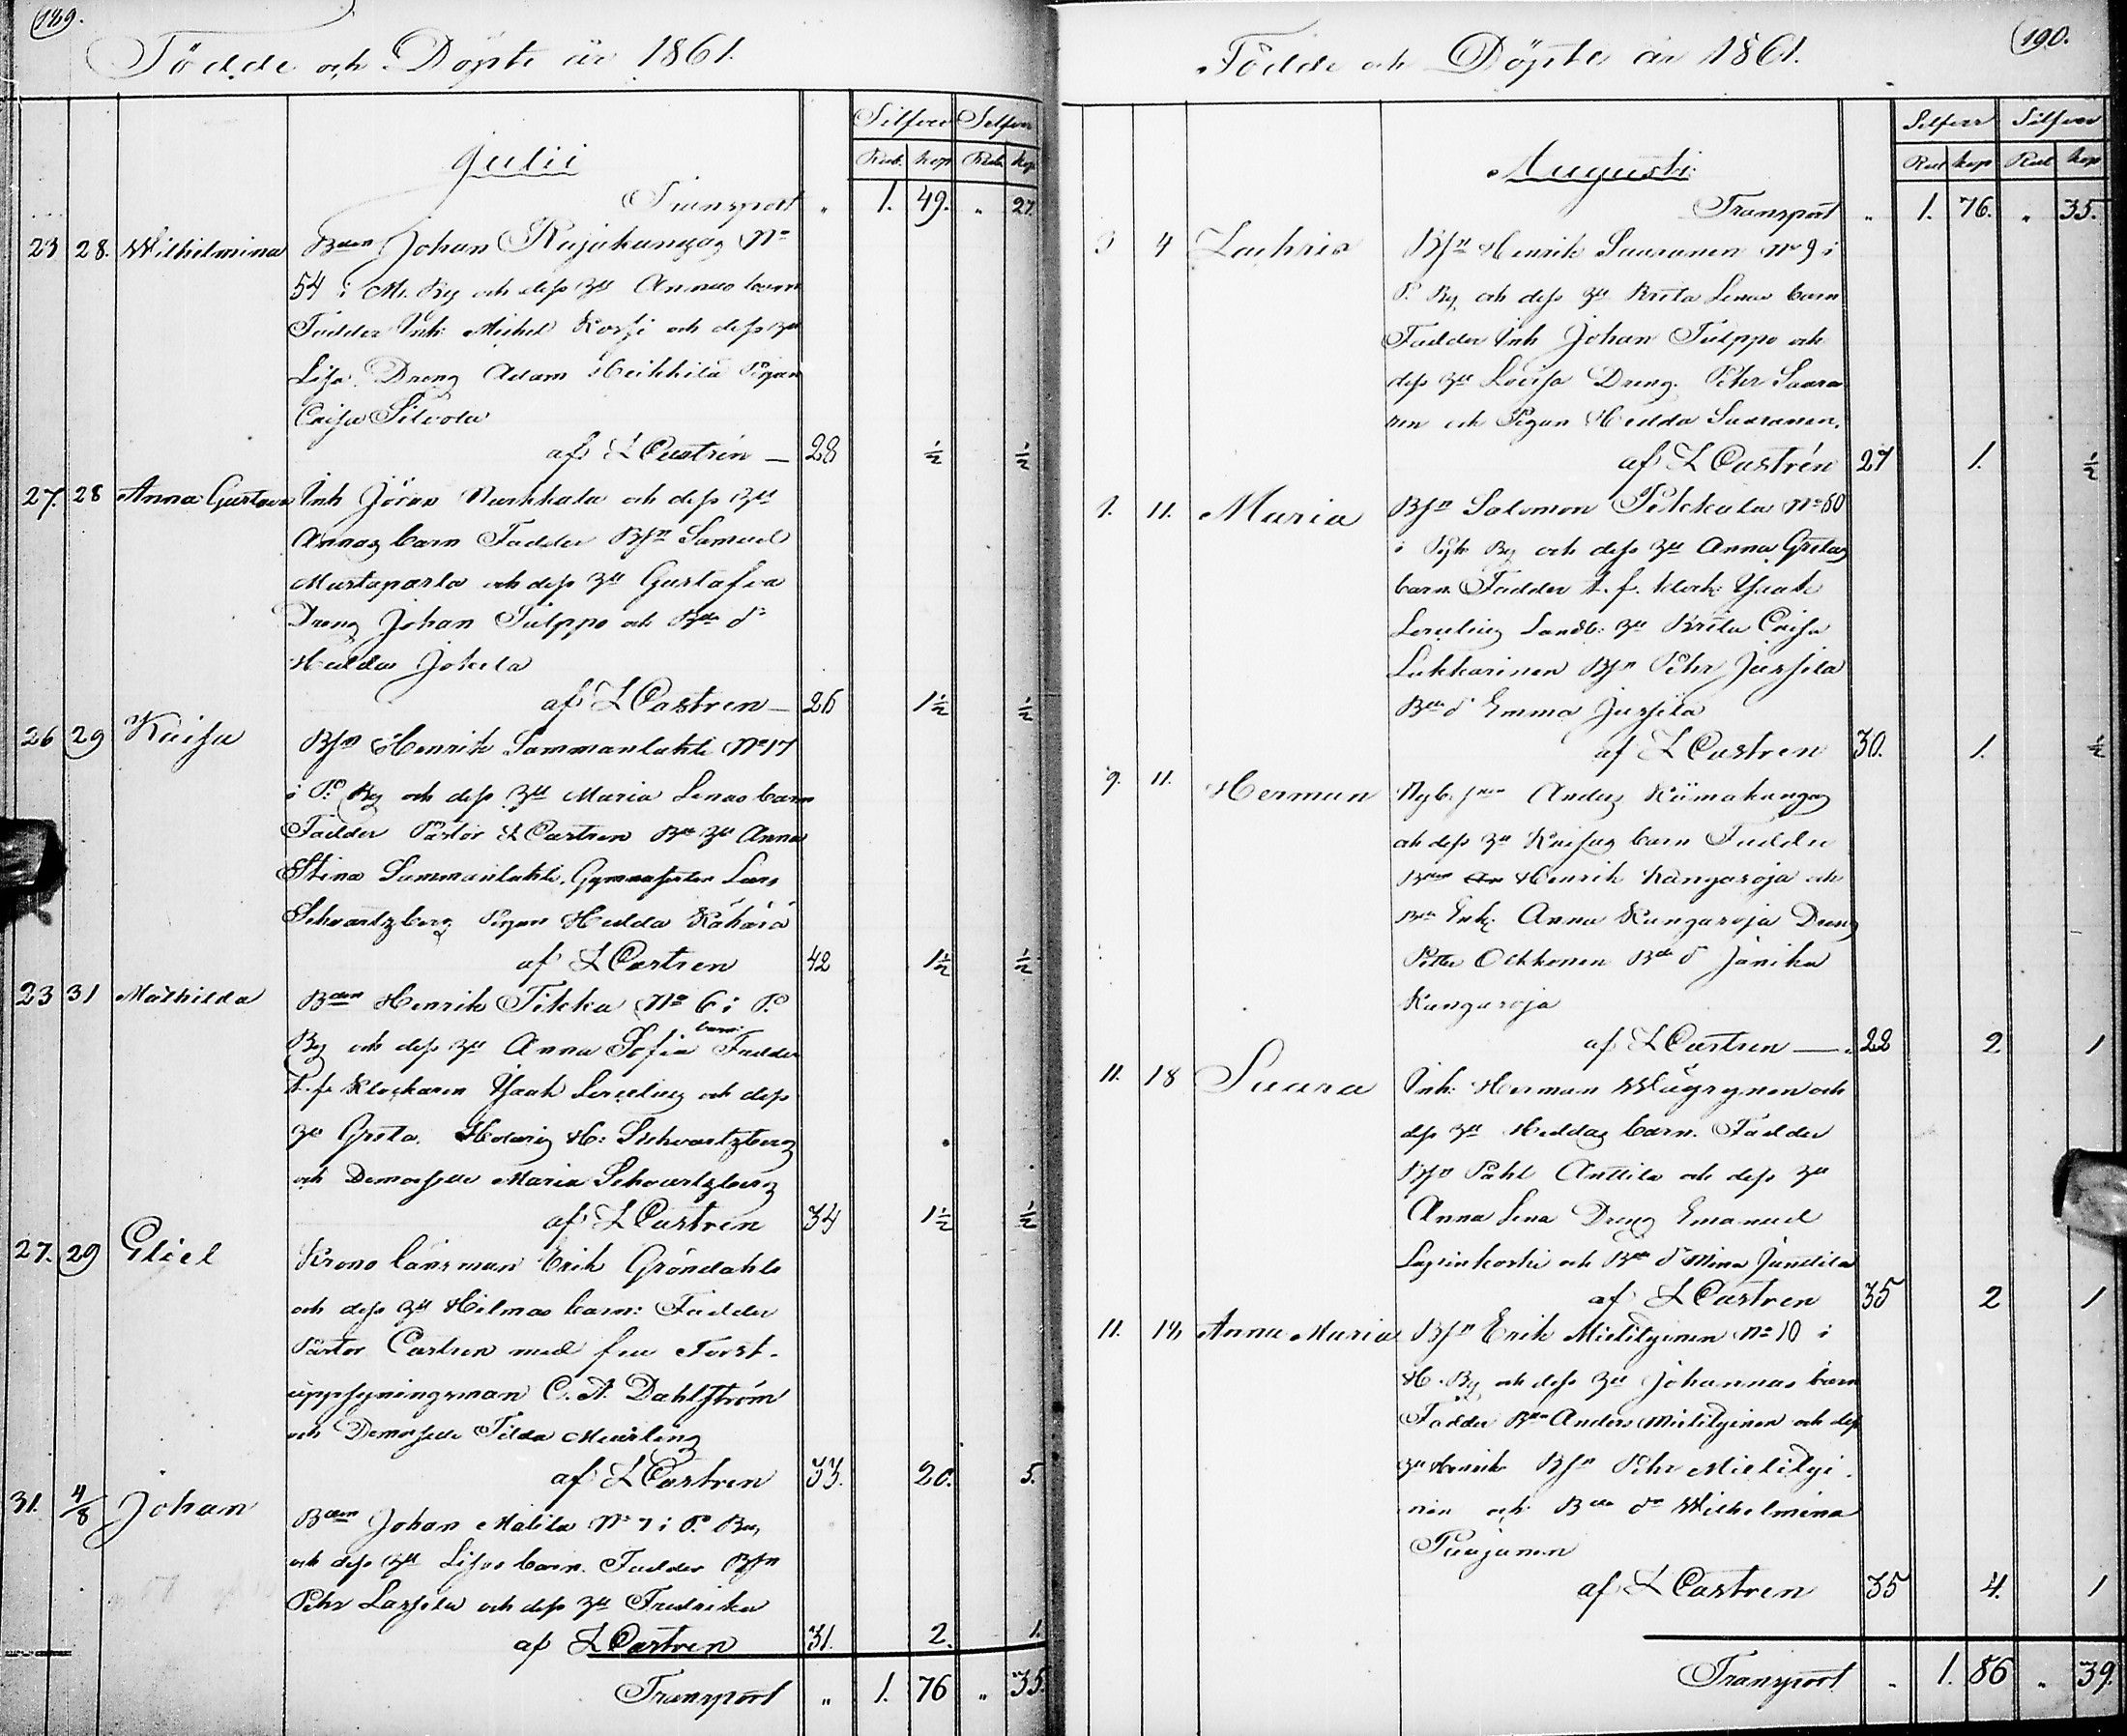 189.
Födde och Döpte år 1861.
Silfver Silfver
Rub. kop Rub. kop
Julii
Transport " 1. 49. " 27.
23 28. Wilhelmina Bden Johan No
54 i M. By och dess hu Annas barn
Faddrar Inh: Michel Koski och dess hu
Lisa. Dreng Adam Heikkilä Pigan
Caisa
af L Castrén — 28 ½ ½
27. 28 Anna Gustava Inh Jöran Nurkkala och dess hu
Annas barn Faddrar Bsn Samuel
Martaparta och dess hu Gustafva
Dreng Johan Tulppo och Bde dr
Hedda Jokela
af L Castren — 26 1½ ½
26 29 Kaisa Bsn Henrik Sammanlahti No 17
i P. By och dess hu Maria Lenas barn
Faddrar Pastor L Castren Bde hu Anna
Stina Sammanlahti, Gymnasisten Lars
Schvartzberg Pigan Hedda Kähärä
af L Castren 42 1½ ½
23 31 Mathilda Bden Henrik Tikka No 6 i P.
barn:
By och dess hu Anna Sofia Faddrar
t. f. Klockaren Isaak och dess
hu Greta. Hedvig H: Schvartzberg
och Demoiselle Maria Schvartzberg
af L Castren 34 1½ ½
27. 29 Eliel Krono länsman Erik Gröndahls
och dess hu Hilmas barn: Faddrar
Pastor Castren med fru Forst-
uppsyningsman C. A. Dahlström
och Demoiselle Tilda Meurling
af L Castren 33. 20. 5.
31. 4/8 Johan Bden Johan Matila No 7 i P. By,
och dess hu Lisas barn. Faddrar Bsn
Pehr Lassila och dess hu Fredrika
af L Castren 31. 2. 1.
Transport " 1. 76 " 35.
190.
Födde och Döpte år 1861.
Silfver Silfver
Rub kop Rub kop
Augusti
Transport " 1. 76. " 35.
3 4 Zachris Bsn Henrik Saaranen No 9 i
P. By, och dess hu Brita Lenas barn
Faddrar Inh Johan Tulppo och
dess hu Lovisa Dreng. Pehr Saara
nen och Pigan Hedda Saaranen.
af L Castrén 27 1. ½
1. 11. Maria Bsn Salomon Pikkala No 60
i By och dess hu Anna Gretas
barn. Faddrar t. f. klock: Isaak
Landb: hu Brita Caisa
Lukkarinen Bsn Pehr Jussila
Bde dr Emma Jussila
af L Castren 30. 1. ½
9. 11. Herman Nyb. Anders Kiimakangas
och dess hu Kaisas barn Faddrar
Bden Henrik Kangasoja och
Bde Enk: Anna Kangasoja Dreng
Petter Ockkonen Bde dr Janika
Kangasoja
af L Castren — 22 2 1
11. 18 Saara Inh: Herman Wäyrynen och
dess hu Heddas barn. Faddrar
Bsn Påhl Anttila och dess hu
Anna Lena Dreng Emanuel
Lapinkoski och Bde dr Mina Junttila
af L Castren 35 2 1
11. 18 Anna Maria Bsn Erik Mielityinen No 10 i
H. By och dess hu Johannas barn
Faddrar Bden Anders Mielityinen och dess
hu Henrik Bsn Pehr Mielityi-
nen och Bde dr Wilhelmina
af L Castren 35 4. 1
Transport " 1. 86 " 39.